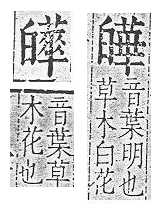 皣
音葉明也
草木白花
音葉草
木花也